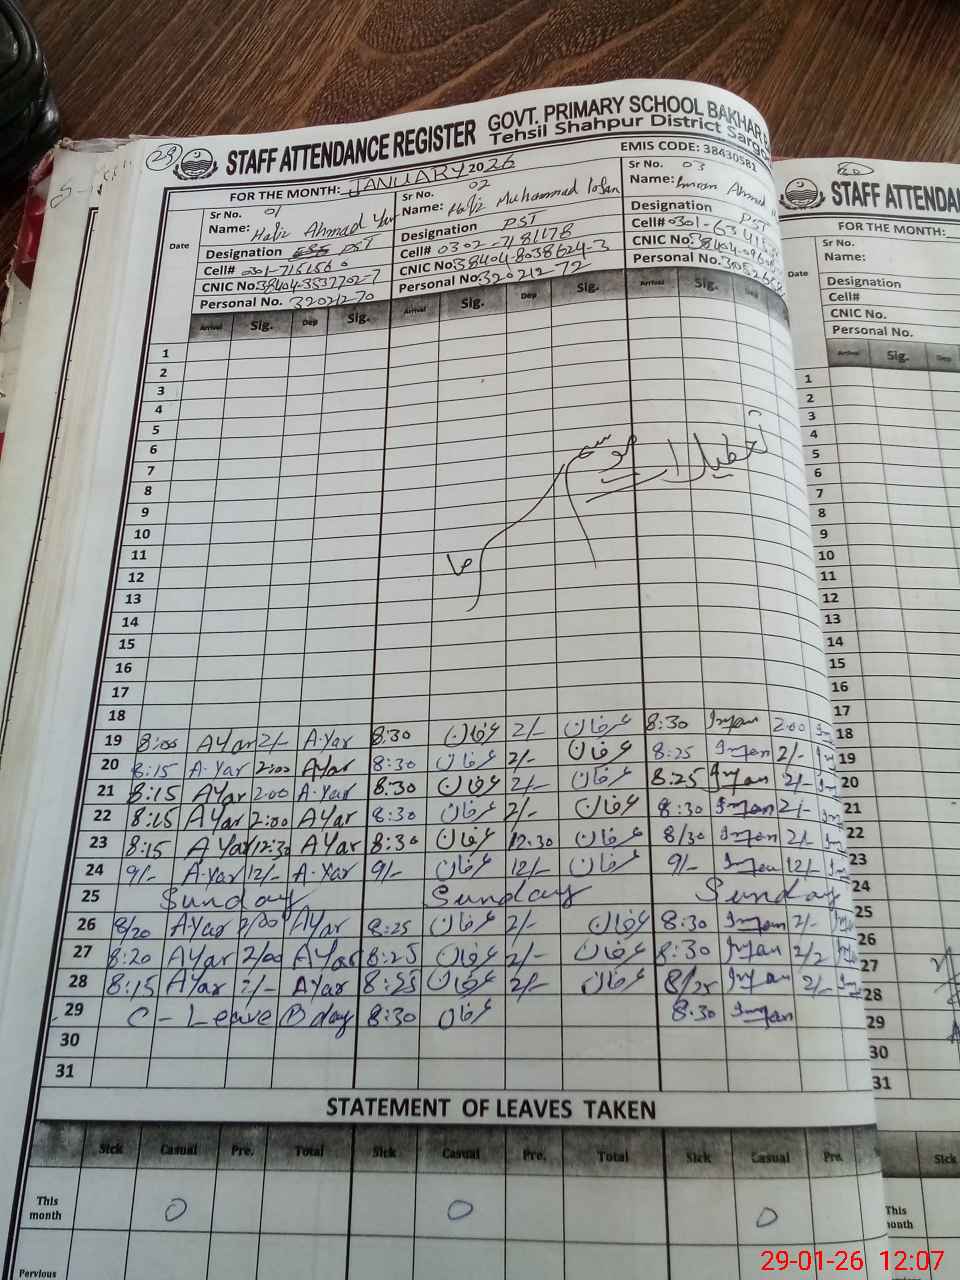 29
STAFF ATTENDANCE REGISTER GOVT. PRIMARY SCHOOL BAKHAR
Tehsil Shahpur District Sarg
EMIS CODE: 38430581
FOR THE MONTH: JANUARY 2026
Date
Sr No. 01
Name: Hafiz Ahmad Yar
Designation PST
Cell#
CNIC No. 38404-3537702-7
Personal No. 320212-70
Sr No. 02
Name: Hafiz Muhammad Irfan
Designation PST
Cell# 0302-7181178
CNIC No. 38404-8038624-3
Personal No. 320212-72
Sr No. 03
Name: Imran Ahmad
Designation PST
Cell#
CNIC No.
Personal No.
Arrival Sig. Dep Sig. Arrival Sig. Dep Sig. Arrival Sig. Dep
1
2
3
4
5
6
7
8
9
10
11
12
13
14
15
16
17
18
تعطیلات موسم سرما
19 8:00 AYar 2/- A.Yar 8:30 عرفان 2/- عرفان 8:30 Imran 2:00
20 8:15 A.Yar 2:00 AYar 8:30 عرفان 2/- عرفان 8:25 Imran 2/-
21 8:15 AYar 2:00 A.Yar 8:30 عرفان 2/- عرفان 8:25 Imran 2/-
22 8:15 AYar 2:00 AYar 8:30 عرفان 2/- عرفان 8:30 Imran 2/-
23 8:15 AYar 12:30 AYar 8:30 عرفان 12:30 عرفان 8/30 Imran 2/-
24 9/- A.Yar 12/- A.Yar 9/- عرفان 12/- عرفان 9/- Imran 12/-
25 Sunday Sunday Sunday
26 8/20 AYar 2/00 AYar 8:25 عرفان 2/- عرفان 8:30 Imran 2/-
27 8:20 AYar 2/00 AYar 8:25 عرفان 2/- عرفان 8:30 Imran 2/2
28 8:15 AYar 2/- AYar 8:25 عرفان 2/- عرفان 8/25 Imran 2/-
29 C-Leave B day 8:30 عرفان 8:30 Imran
30
31
STATEMENT OF LEAVES TAKEN
Sick Casual Pre. Total Sick Casual Pre. Total Sick Casual Pre.
This month 0 0 0
Pervious
STAFF ATTENDA
FOR THE MONTH:
Date
Sr No.
Name:
Designation
Cell#
CNIC No.
Personal No.
Arrival Sig. Dep
1
2
3
4
5
6
7
8
9
10
11
12
13
14
15
16
17
18
19
20
21
22
23
24
25
26
27
28
29
30
31
Sick
This month
29-01-26 12:07